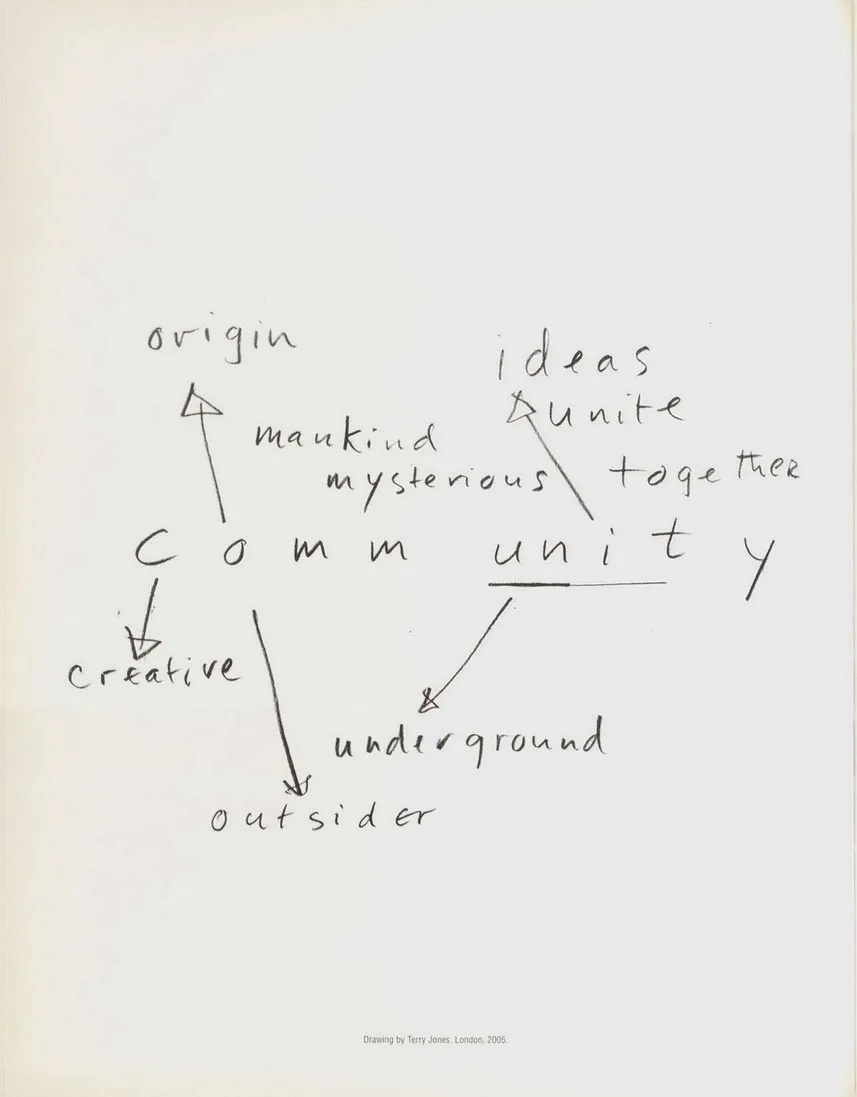 origin
ideas
unite
mankind
mysterious
together
c o m m u n i t y
creative
underground
outsider
Drawing by Terry Jones, London, 2005.